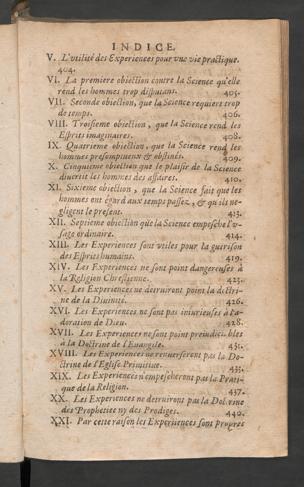 INDICE.
V. L'vtilité des Experiences pour vne vie practique.
404.
VI. La premiere obiection contre la Science qu'elle
rend les hommes trop disputans. 405.
VII. Seconde obiection, que la Science requiert trop
de temps. 406.
VIII. Troisieme obiection, que la Science rend les
Esprits imaginaires. 408.
IX. Quatrieme obiection, que la Science rend les
hommes presomptueux & obstinés. 409.
X. Cinquieme obiection que le plaisir de la Science
diuertit les hommes des affaires. 410.
XI. Sixieme obiection, que la Science fait que les
hommes ont égard aux temps passez, & qu'ils ne-
gligent le present. 413.
XII. Septieme obiection que la Science empesche l'v-
sage ordinaire. 414.
XIII. Les Experiences sont vtiles pour la guerison
des Esprits humains. 419.
XIV. Les Experiences ne sont point dangereuses à
la Religion Chrestienne. 423.
XV. Les Experiences ne detruiront point la doctri-
ne de la Diuinité. 426.
XVI. Les Experiences ne sont pas iniurieuses à l'a-
doration de Dieu. 428.
XVII. Les Experiences ne sont point preiudiciables
à la Doctrine de l'Euangile. 431.
XVIII. Les Experiences ne renuerseront pas la Do-
ctrine de l'Eglise Primitiue. 433.
XIX. Les Experiences n'empescheront pas la Prati-
que de la Religion. 437.
XX. Les Experiences ne detruiront pas la Doctrine
des Propheties ny des Prodiges. 440.
XXI. Par cette raison les Experiences sont propres